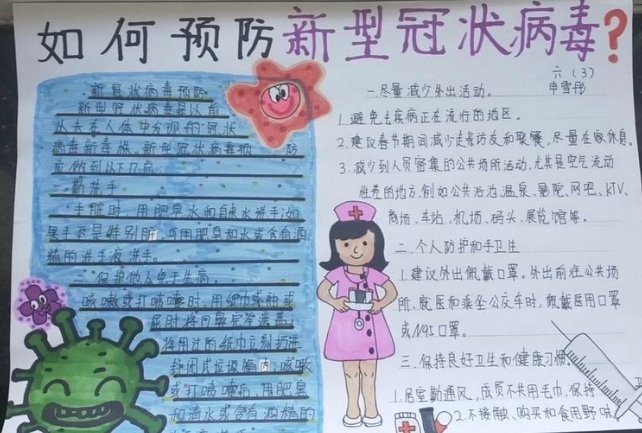 如何预防新型冠状病毒?
六（3）
申雪彤
新冠状病毒预防
新型冠状病毒是以前
从未在人体中发现的冠状
病毒新毒株。新型冠状病毒预防
应做到以下几点
勤洗手
手脏时，用肥皂水和自来水洗手；如
果手不是特别脏，可用肥皂和水或含有酒
精的洗手液洗手。
保护他人免于生病
咳嗽或打喷嚏时，用纸巾或袖或
屈肘将口鼻完全遮盖；
将用过的纸巾立刻扔进
封闭式垃圾箱内；咳嗽
或打喷嚏后，用肥皂
和清水或含有酒精的
一.尽量减少外出活动。
1.避免去疾病正在流行的地区。
2.建议春节期间减少走亲访友和聚餐，尽量在家休息。
3.减少到人员密集的公共场所活动，尤其是空气流动
性差的地方，例如公共浴池、温泉、影院、网吧、KTV、
商场、车站、机场、码头、展览馆等。
二.个人防护和手卫生
1.建议外出佩戴口罩。外出前往公共场
所、就医和乘坐公交车时，佩戴医用口罩
或N95口罩。
三.保持良好卫生和健康习惯
1.居室勤通风，成员不共用毛巾，保持
2.不接触、购买和食用野味